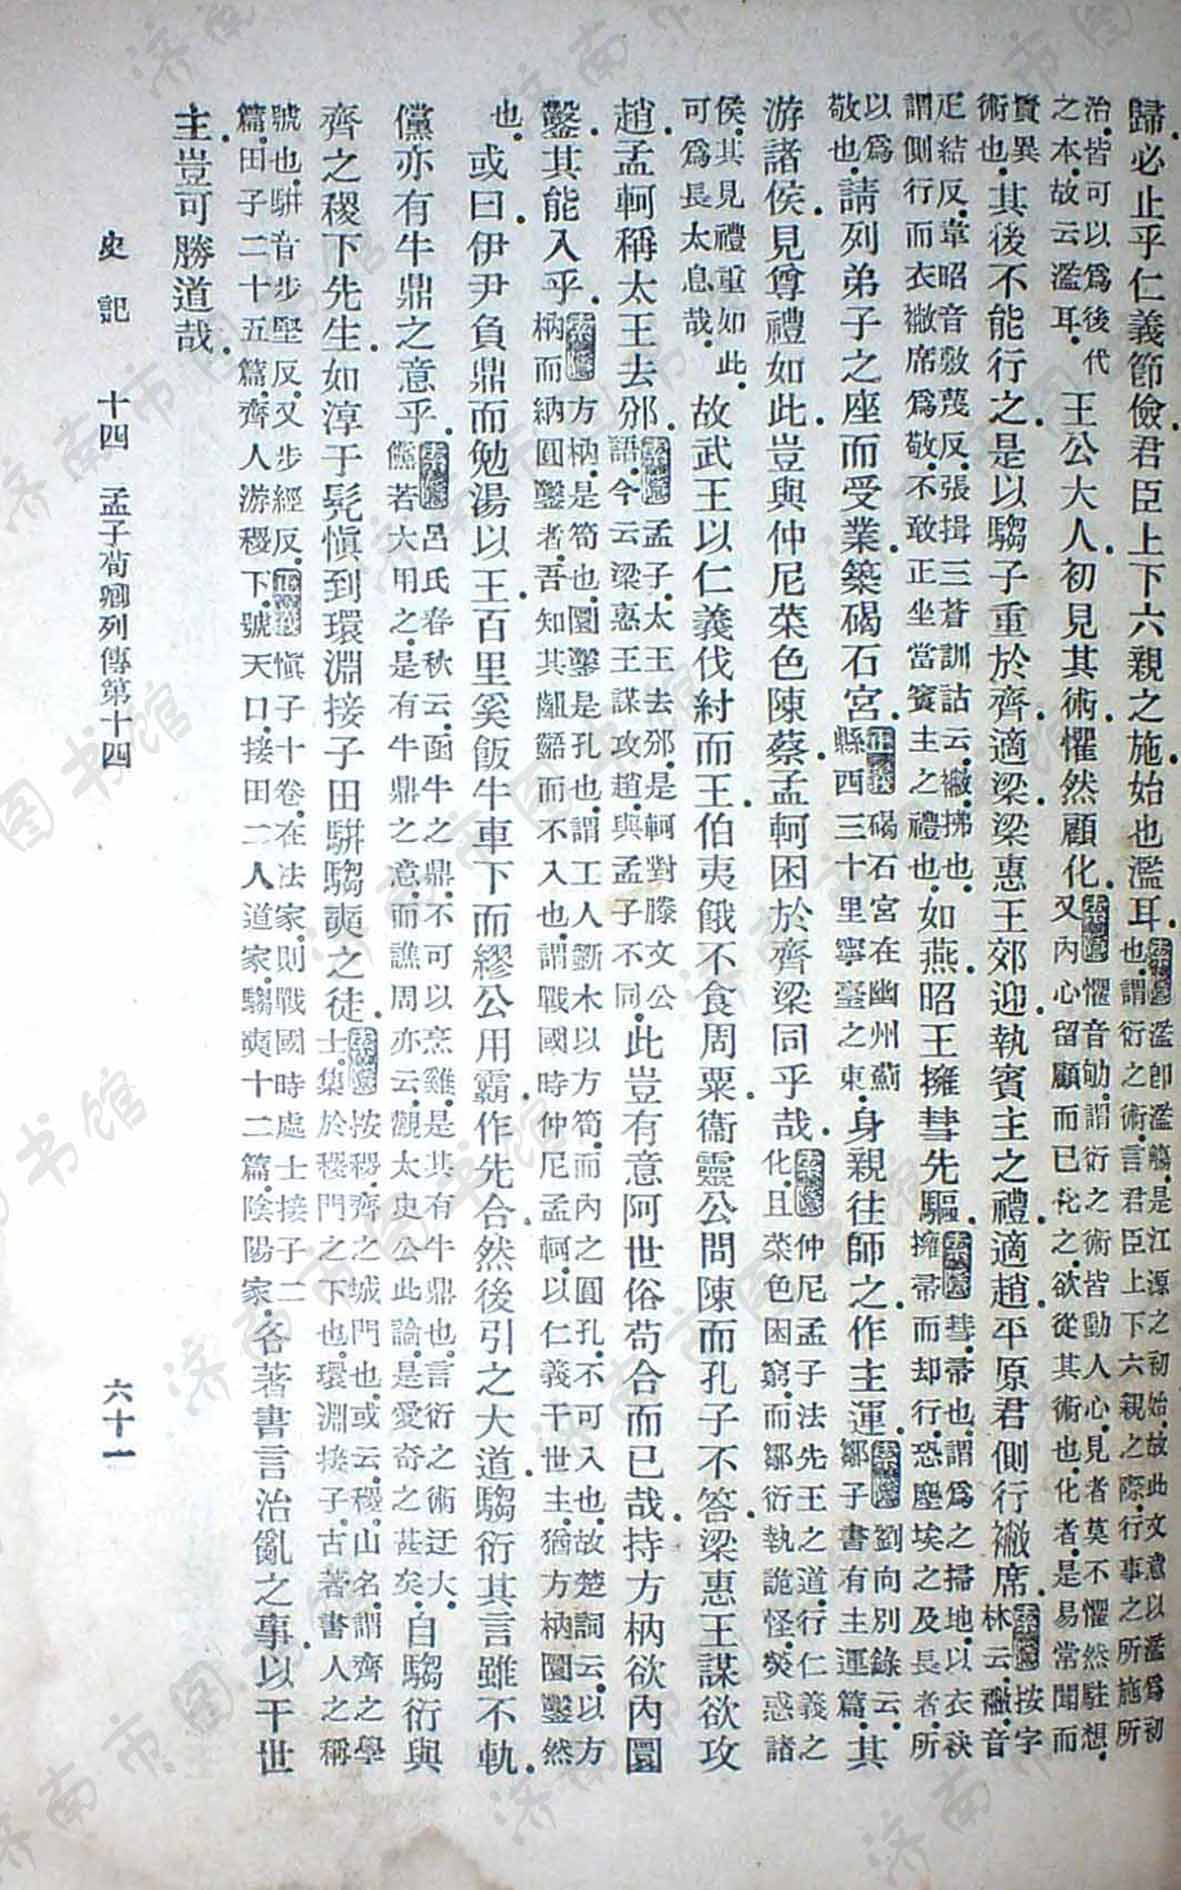 歸必止乎仁義節儉君臣上下六親之施始也濫耳。索隱濫卽濫觴是江源之初始。故此文意以濫爲初也。謂衍之術。言君臣上下六親之際。行事之所施所
治。皆可以爲後代之本。故云濫耳。王公大人。初見其術。懼然顧化。索隱懼音劬。謂衍之術皆動人心。見者莫不懼然駐想。又內心留顧而已化之。欲從其術也。化者。是易常聞而
貴異術也。其後不能行之。是以騶子重於齊。適梁。梁惠王郊迎。執賓主之禮。適趙。平原君側行襒席。索隱按字林云。襒。音
疋結反。韋昭音敷蔑反。張揖三蒼訓詁云。襒。拂也。謂側行而衣襒席爲敬。不敢正坐當賓主之禮也。如燕。昭王擁彗先驅。索隱彗。帚也。謂爲之掃地。以衣袂擁帚而却行。恐塵埃之及長者。所
以爲敬也。請列弟子之座而受業。築碣石宮。正義碣石宮在幽州薊縣西三十里寧臺之東。身親往師之。作主運。索隱劉向別錄云。鄒子書有主運篇。其
游諸侯。見尊禮如此。豈與仲尼菜色陳蔡。孟軻困於齊梁同乎哉。索隱仲尼孟子法先王之道。行仁義之化。且菜色困窮。而鄒衍執詭怪。熒惑諸
侯。其見禮重如此。可爲長太息哉。故武王以仁義伐紂而王。伯夷餓不食周粟。衞靈公問陳而孔子不答。梁惠王謀欲攻
趙。孟軻稱太王去邠。索隱孟子太王去邠。是軻對滕文公語。今云梁惠王謀攻趙。與孟子不同。此豈有意阿世俗苟合而已哉。持方枘欲內圜
鑿。其能入乎。索隱方枘。是筍也。圜鑿。是孔也。謂工人斲木以方筍。而內之圓孔。不可入也。故楚詞云。以方枘而納圓鑿者。吾知其齟齬而不入也。謂戰國時仲尼孟軻。以仁義干世主。猶方枘圜鑿然
也。或曰。伊尹負鼎而勉湯以王。百里奚飯牛車下而繆公用霸。作先合。然後引之大道。騶衍其言雖不軌。
儻亦有牛鼎之意乎。索隱呂氏春秋云。函牛之鼎。不可以烹雞。是其有牛鼎也。言衍之術迂大。儻若大用之。是有牛鼎之意。而譙周亦云。觀太史公此論。是愛奇之甚矣。自騶衍與
齊之稷下先生。如淳于髡愼到環淵接子田駢騶奭之徒。索隱按稷。齊之城門也。或云。稷。山名。謂齊之學士。集於稷門之下也。環淵接子。古著書人之稱
號也。駢音步堅反。又步經反。正義愼子十卷。在法家。則戰國時處士。接子二篇。田子二十五篇。齊人。游稷下。號天口。接田二人道家。騶奭十二篇。陰陽家。各著書言治亂之事。以干世
主。豈可勝道哉。
史記 十四 孟子荀卿列傳第十四 六十一